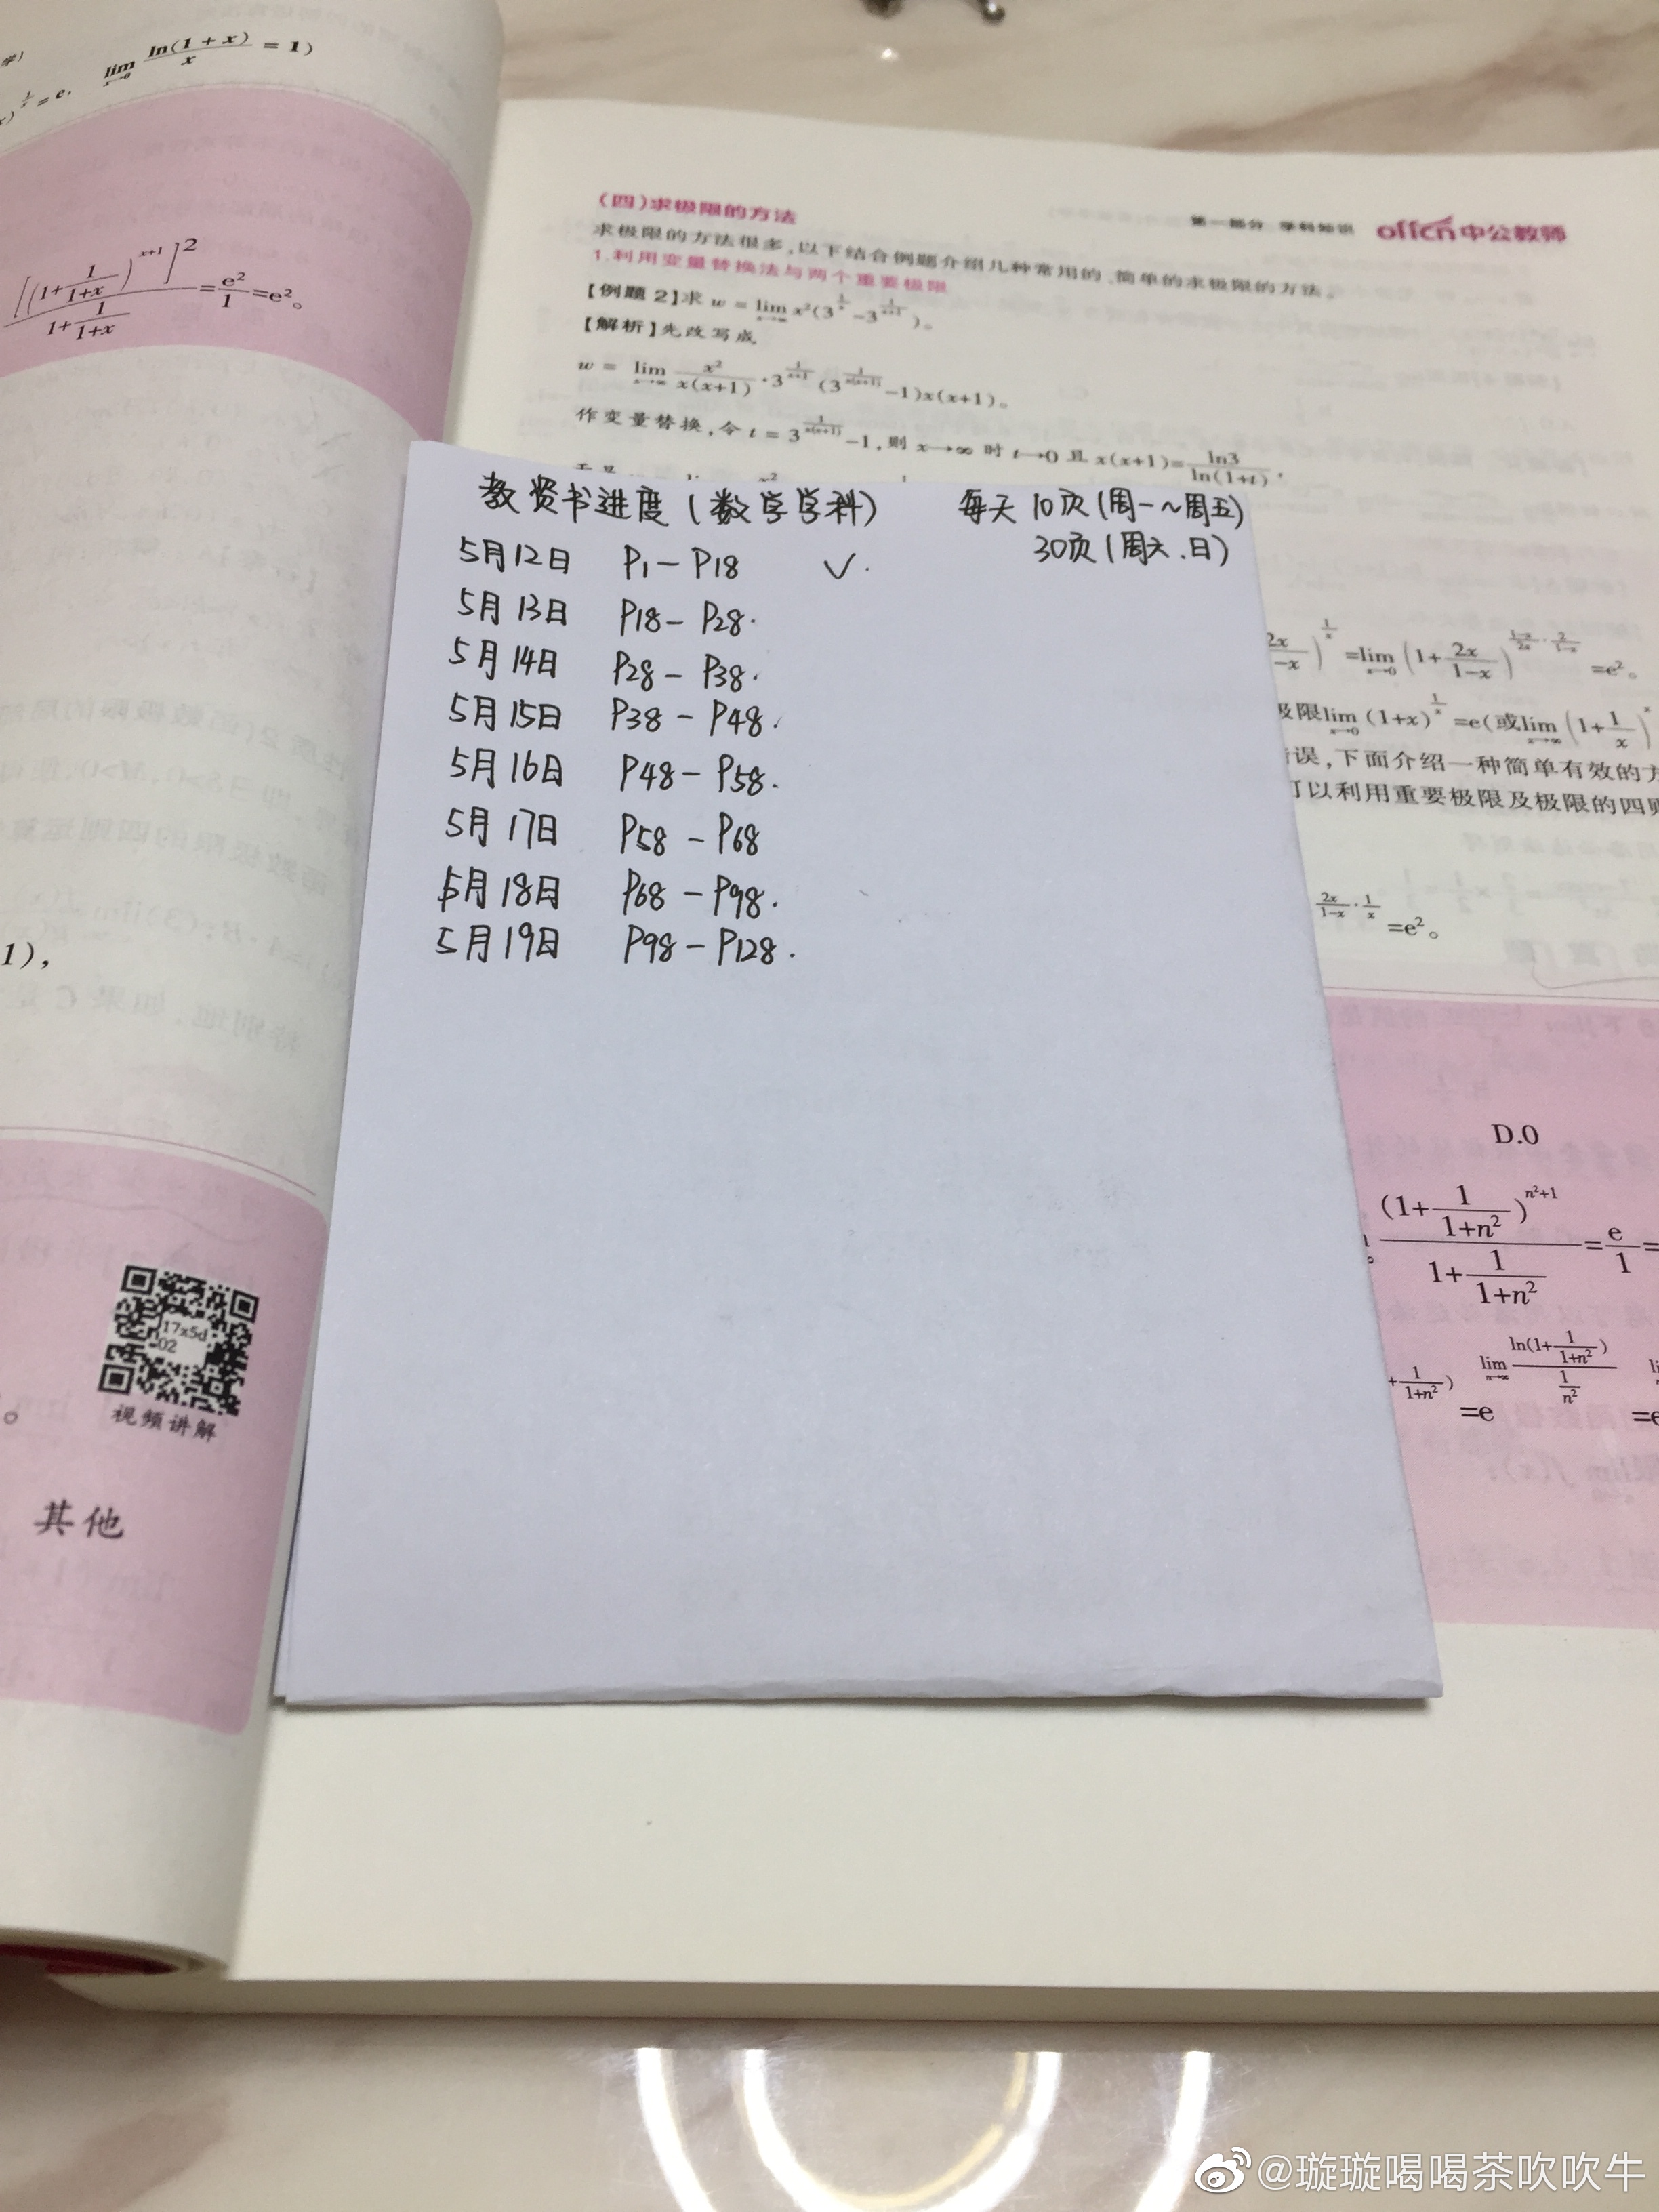 lim x→0 ln(1+x)/x = 1)
[(1+1/(1+x))^(x+1)]^2 / (1+1/(1+x)) = e²/1 = e²。
1),
17x5d
02
视频讲解
其他
第一部分 学科知识 offcn中公教师
(四)求极限的方法
求极限的方法很多,以下结合例题介绍几种常用的、简单的求极限的方法。
1.利用变量替换法与两个重要极限
【例题2】求 w = lim x→∞ x²(3^(1/x) - 3^(1/(x+1)))。
【解析】先改写成
w = lim x→∞ x²/(x(x+1)) · 3^(1/(x+1)) (3^(1/(x(x+1))) -1)x(x+1)。
作变量替换,令 t = 3^(1/(x(x+1))) -1,则 x→∞ 时 t→0 且 x(x+1)= ln3/ln(1+t),
教资书进度(数学学科) 每天10页(周一~周五)
30页(周六.日)
5月12日 P1-P18 ✓.
5月13日 P18-P28.
5月14日 P28-P38.
5月15日 P38-P48.
5月16日 P48-P58.
5月17日 P58-P68
5月18日 P68-P98.
5月19日 P98-P128.
=lim x→0 (1+2x/(1-x))^((1-x)/2x · 2/(1-x)) =e²。
极限lim x→0 (1+x)^(1/x) =e(或lim x→∞ (1+1/x)^x
误,下面介绍一种简单有效的方
可以利用重要极限及极限的四则
2x/(1-x) · 1/x =e²。
D.0
(1+1/(1+n²))^(n²+1) / (1+1/(1+n²)) = e/1 =
lim n→∞ ln(1+1/(1+n²)) / (1/n²)
=e
@璇璇喝喝茶吹吹牛